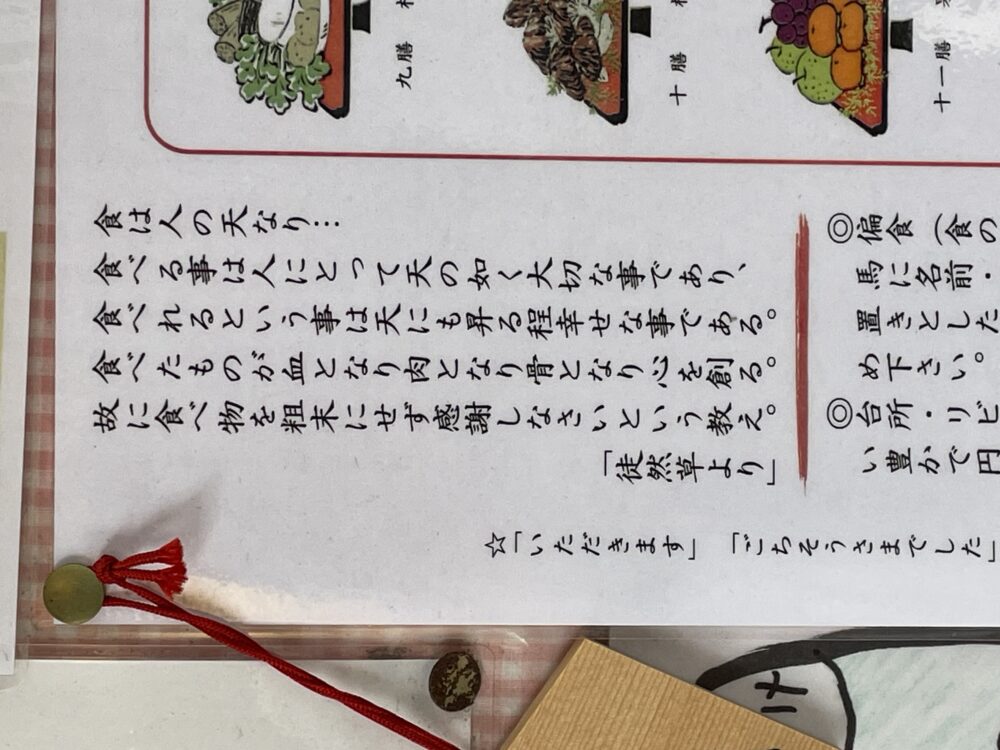 九膳
十膳
十一膳
食は人の天なり…
食べる事は人にとって天の如く大切な事であり、
食べれるという事は天にも昇る程幸せな事である。
食べたものが血となり肉となり骨となり心を創る。
故に食べ物を粗末にせず感謝しなさいという教え。
「徒然草より」
◎偏食（食の
馬に名前・
置きとした
め下さい。
◎台所・リビ
い豊かで円
☆「いただきます」「ごちそうさまでした」